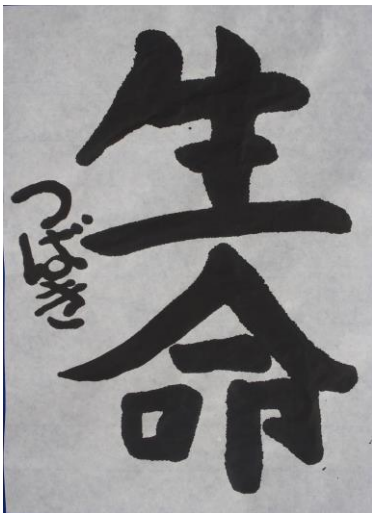 生命
つばき